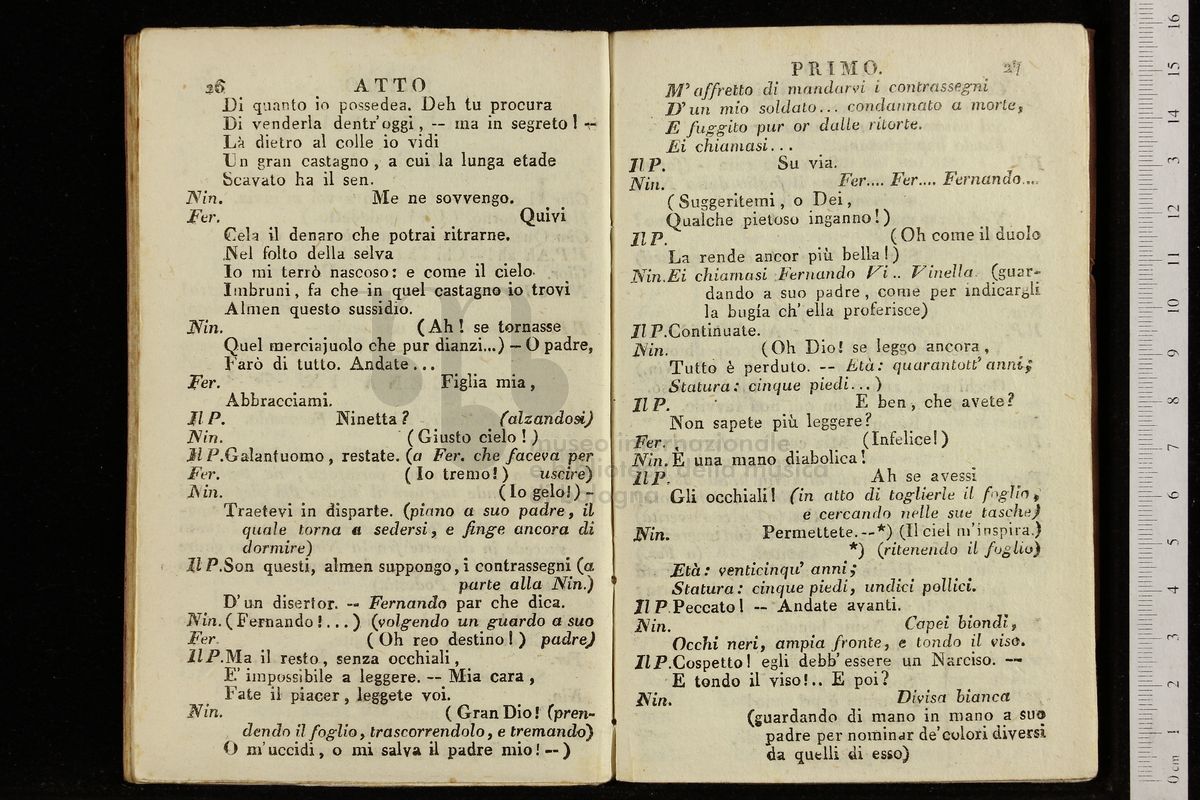 26 ATTO
Di quanto io possedea. Deh tu procura
Di venderla dentr'oggi, -- ma in segreto! --
Là dietro al colle io vidi
Un gran castagno, a cui la lunga etade
Scavato ha il sen.
Nin. Me ne sovvengo.
Fer. Quivi
Cela il denaro che potrai ritrarne.
Nel folto della selva
Io mi terrò nascoso: e come il cielo
Imbruni, fa che in quel castagno io trovi
Almen questo sussidio.
Nin. (Ah! se tornasse
Quel merciajuolo che pur dianzi...) — O padre,
Farò di tutto. Andate...
Fer. Figlia mia,
Abbracciami.
Il P. Ninetta? (alzandosi)
Nin. (Giusto cielo!)
Il P. Galantuomo, restate. (a Fer. che faceva per
Fer. (Io tremo!) uscire)
Nin. (Io gelo!) -
Traetevi in disparte. (piano a suo padre, il
quale torna a sedersi, e finge ancora di
dormire)
Il P. Son questi, almen suppongo, i contrassegni (a
parte alla Nin.)
D'un disertor. -- Fernando par che dica.
Nin. (Fernando!...) (volgendo un guardo a suo
Fer. (Oh reo destino!) padre)
Il P. Ma il resto, senza occhiali,
E' impossibile a leggere. -- Mia cara,
Fate il piacer, leggete voi.
Nin. (Gran Dio! (pren-
dendo il foglio, trascorrendolo, e tremando)
O m'uccidi, o mi salva il padre mio! --)
PRIMO. 27
M'affretto di mandarvi i contrassegni
D'un mio soldato... condannato a morte,
E fuggito pur or dalle ritorte.
Ei chiamasi...
Il P. Su via.
Nin. Fer.... Fer.... Fernando...
(Suggeritemi, o Dei,
Qualche pietoso inganno!)
Il P. (Oh come il duolo
La rende ancor più bella!)
Nin. Ei chiamasi Fernando Vi.. Vinella. (guar-
dando a suo padre, come per indicargli
la bugía ch'ella proferisce)
Il P. Continuate.
Nin. (Oh Dio! se leggo ancora,
Tutto è perduto. -- Età: quarantott'anni;
Statura: cinque piedi...)
Il P. E ben, che avete?
Non sapete più leggere?
Fer. (Infelice!)
Nin. È una mano diabolica!
Il P. Ah se avessi
Gli occhiali! (in atto di toglierle il foglio,
e cercando nelle sue tasche)
Nin. Permettete. --*) (Il ciel m'inspira.)
*) (ritenendo il foglio)
Età: venticinqu' anni;
Statura: cinque piedi, undici pollici.
Il P. Peccato! -- Andate avanti.
Nin. Capei biondi,
Occhi neri, ampia fronte, e tondo il viso.
Il P. Cospetto! egli debb'essere un Narciso. --
E tondo il viso!.. E poi?
Nin. Divisa bianca
(guardando di mano in mano a suo
padre per nominar de'colori diversi
da quelli di esso)
museo internazionale
e biblioteca della musica
bologna
0 cm 1 2 3 4 5 6 7 8 9 10 11 12 13 14 15 16